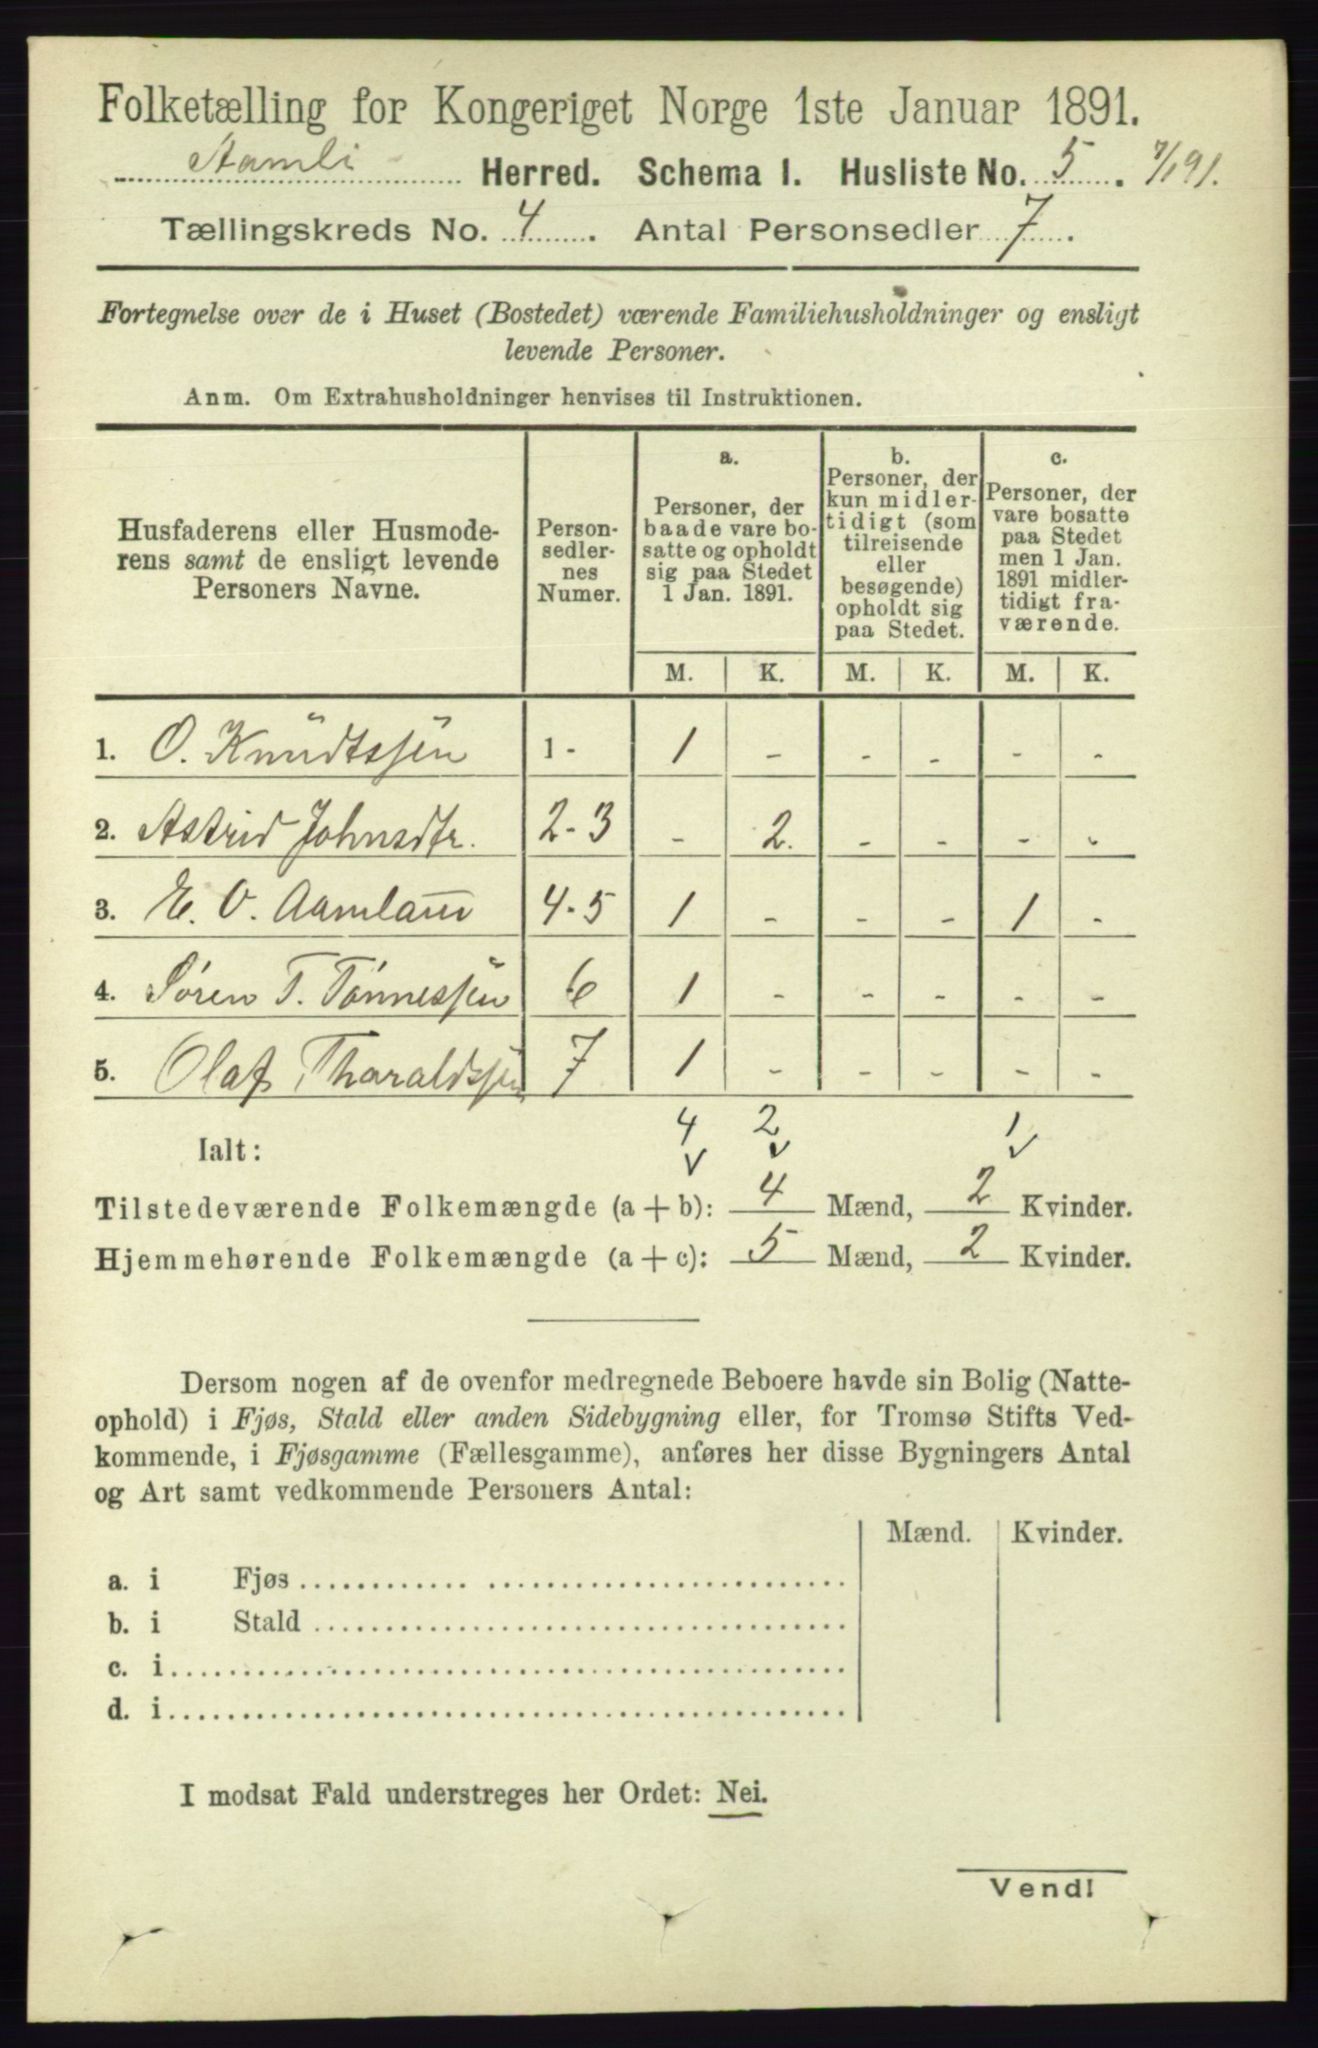 Folketælling for Kongeriget Norge 1ste Januar 1891.
Aamli Herred. Schema I. Husliste No. 5. 7/1 91.
Tællingskreds No. 4. Antal Personsedler 7.
Fortegnelse over de i Huset (Bostedet) værende Familiehusholdninger og ensligt
levende Personer.
Anm. Om Extrahusholdninger henvises til Instruktionen.
Husfaderens eller Husmode-
rens samt de ensligt levende
Personers Navne.
Person-
sedler-
nes
Numer.
a.
Personer, der
baade vare bo-
satte og opholdt
sig paa Stedet
1 Jan. 1891.
b.
Personer, der
kun midler-
tidigt (som
tilreisende
eller
besøgende)
opholdt sig
paa Stedet.
c.
Personer, der
vare bosatte
paa Stedet
men 1 Jan.
1891 midler-
tidigt fra-
værende.
M. K. M. K. M. K.
1. O. Knudtssen 1 - 1 - - - - -
2. Astrid Johnsdtr. 2-3 - 2. - - - -
3. E. O. Aamland 4-5 1 - - - 1 -
4. Søren T. Tønnessen 6 1 - - - - -
5. Olaf Tharaldssen 7 1 - - - - -
Ialt: 4 2 1
Tilstedeværende Folkemængde (a + b): 4 Mænd, 2 Kvinder.
Hjemmehørende Folkemængde (a + c): 5 Mænd, 2 Kvinder.
Dersom nogen af de ovenfor medregnede Beboere havde sin Bolig (Natte-
ophold) i Fjøs, Stald eller anden Sidebygning eller, for Tromsø Stifts Ved-
kommende, i Fjøsgamme (Fællesgamme), anføres her disse Bygningers Antal
og Art samt vedkommende Personers Antal:
Mænd. Kvinder.
a. i Fjøs
b. i Stald
c. i
d. i
I modsat Fald understreges her Ordet: Nei.
Vend!